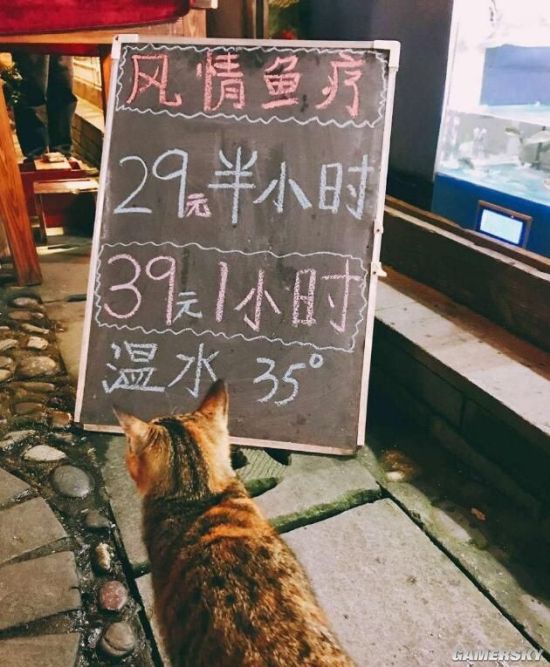 风情鱼疗
29元半小时
39元1小时
温水 35°
GAMERSKY